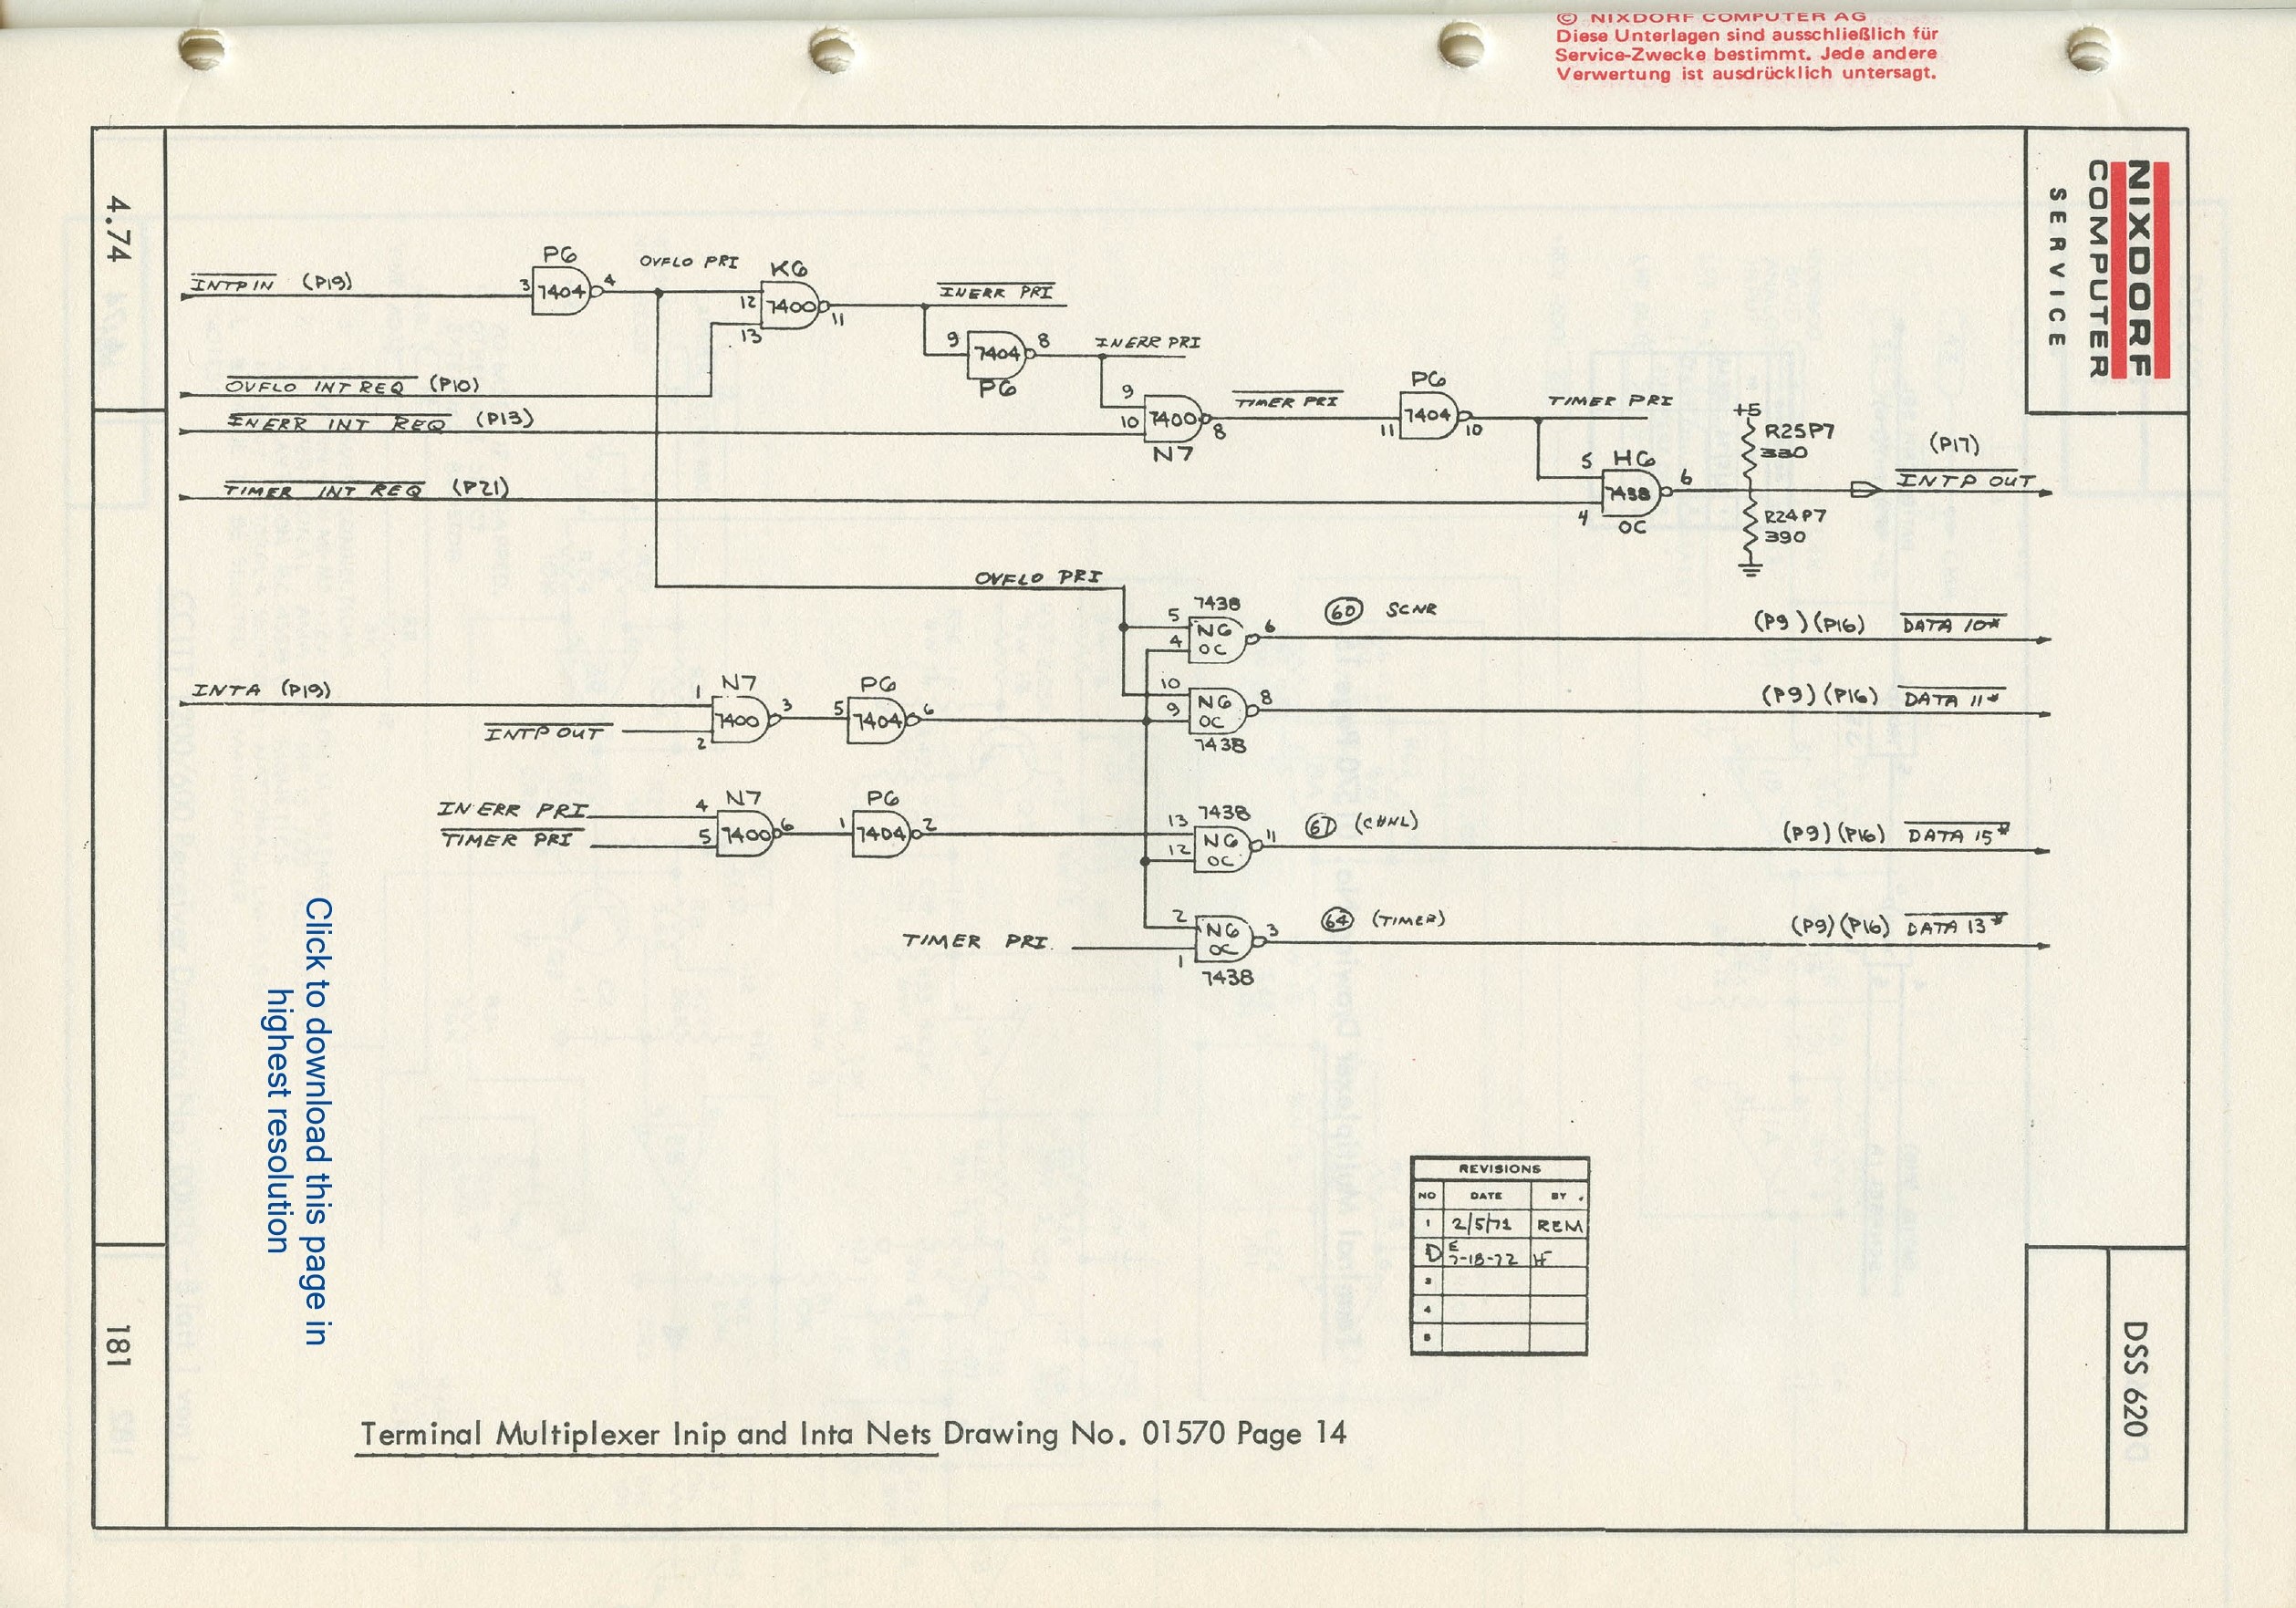 © NIXDORF COMPUTER AG
Diese Unterlagen sind ausschließlich für
Service-Zwecke bestimmt. Jede andere
Verwertung ist ausdrücklich untersagt.
NIXDORF
COMPUTER
SERVICE
4.74
INTPIN (P19)
P6
3 7404 4
OVFLO PRI
K6
12 7400 11
13
INERR PRI
9 7404 8
P6
INERR PRI
OVFLO INT REQ (P10)
INERR INT REQ (P13)
9
10 7400 8
N7
TIMER PRI
P6
11 7404 10
TIMER PRI
+5
R25P7
330
TIMER INT REQ (P21)
5 H6
7438 6
4
OC
(P17)
INTP OUT
R24P7
390
OVFLO PRI
7438
5 N6 6
4 OC
60 SCNR
(P9)(P16) DATA 10*
INTA (P19)
N7
1 7400 3
2
INTP OUT
P6
5 7404 6
10 N6 8
9 OC
7438
(P9)(P16) DATA 11*
INERR PRI
TIMER PRI
N7
4
5 7400 6
P6
1 7404 2
7438
13 N6 11
12 OC
6D (CHNL)
(P9)(P16) DATA 15*
TIMER PRI
2 N6 3
1 OC
7438
64 (TIMER)
(P9)(P16) DATA 13*
Click to download this page in
highest resolution
REVISIONS
NO DATE BY
1 2/5/71 REM
D E 7-18-72 HF
3
4
5
181
DSS 620
Terminal Multiplexer Inip and Inta Nets Drawing No. 01570 Page 14